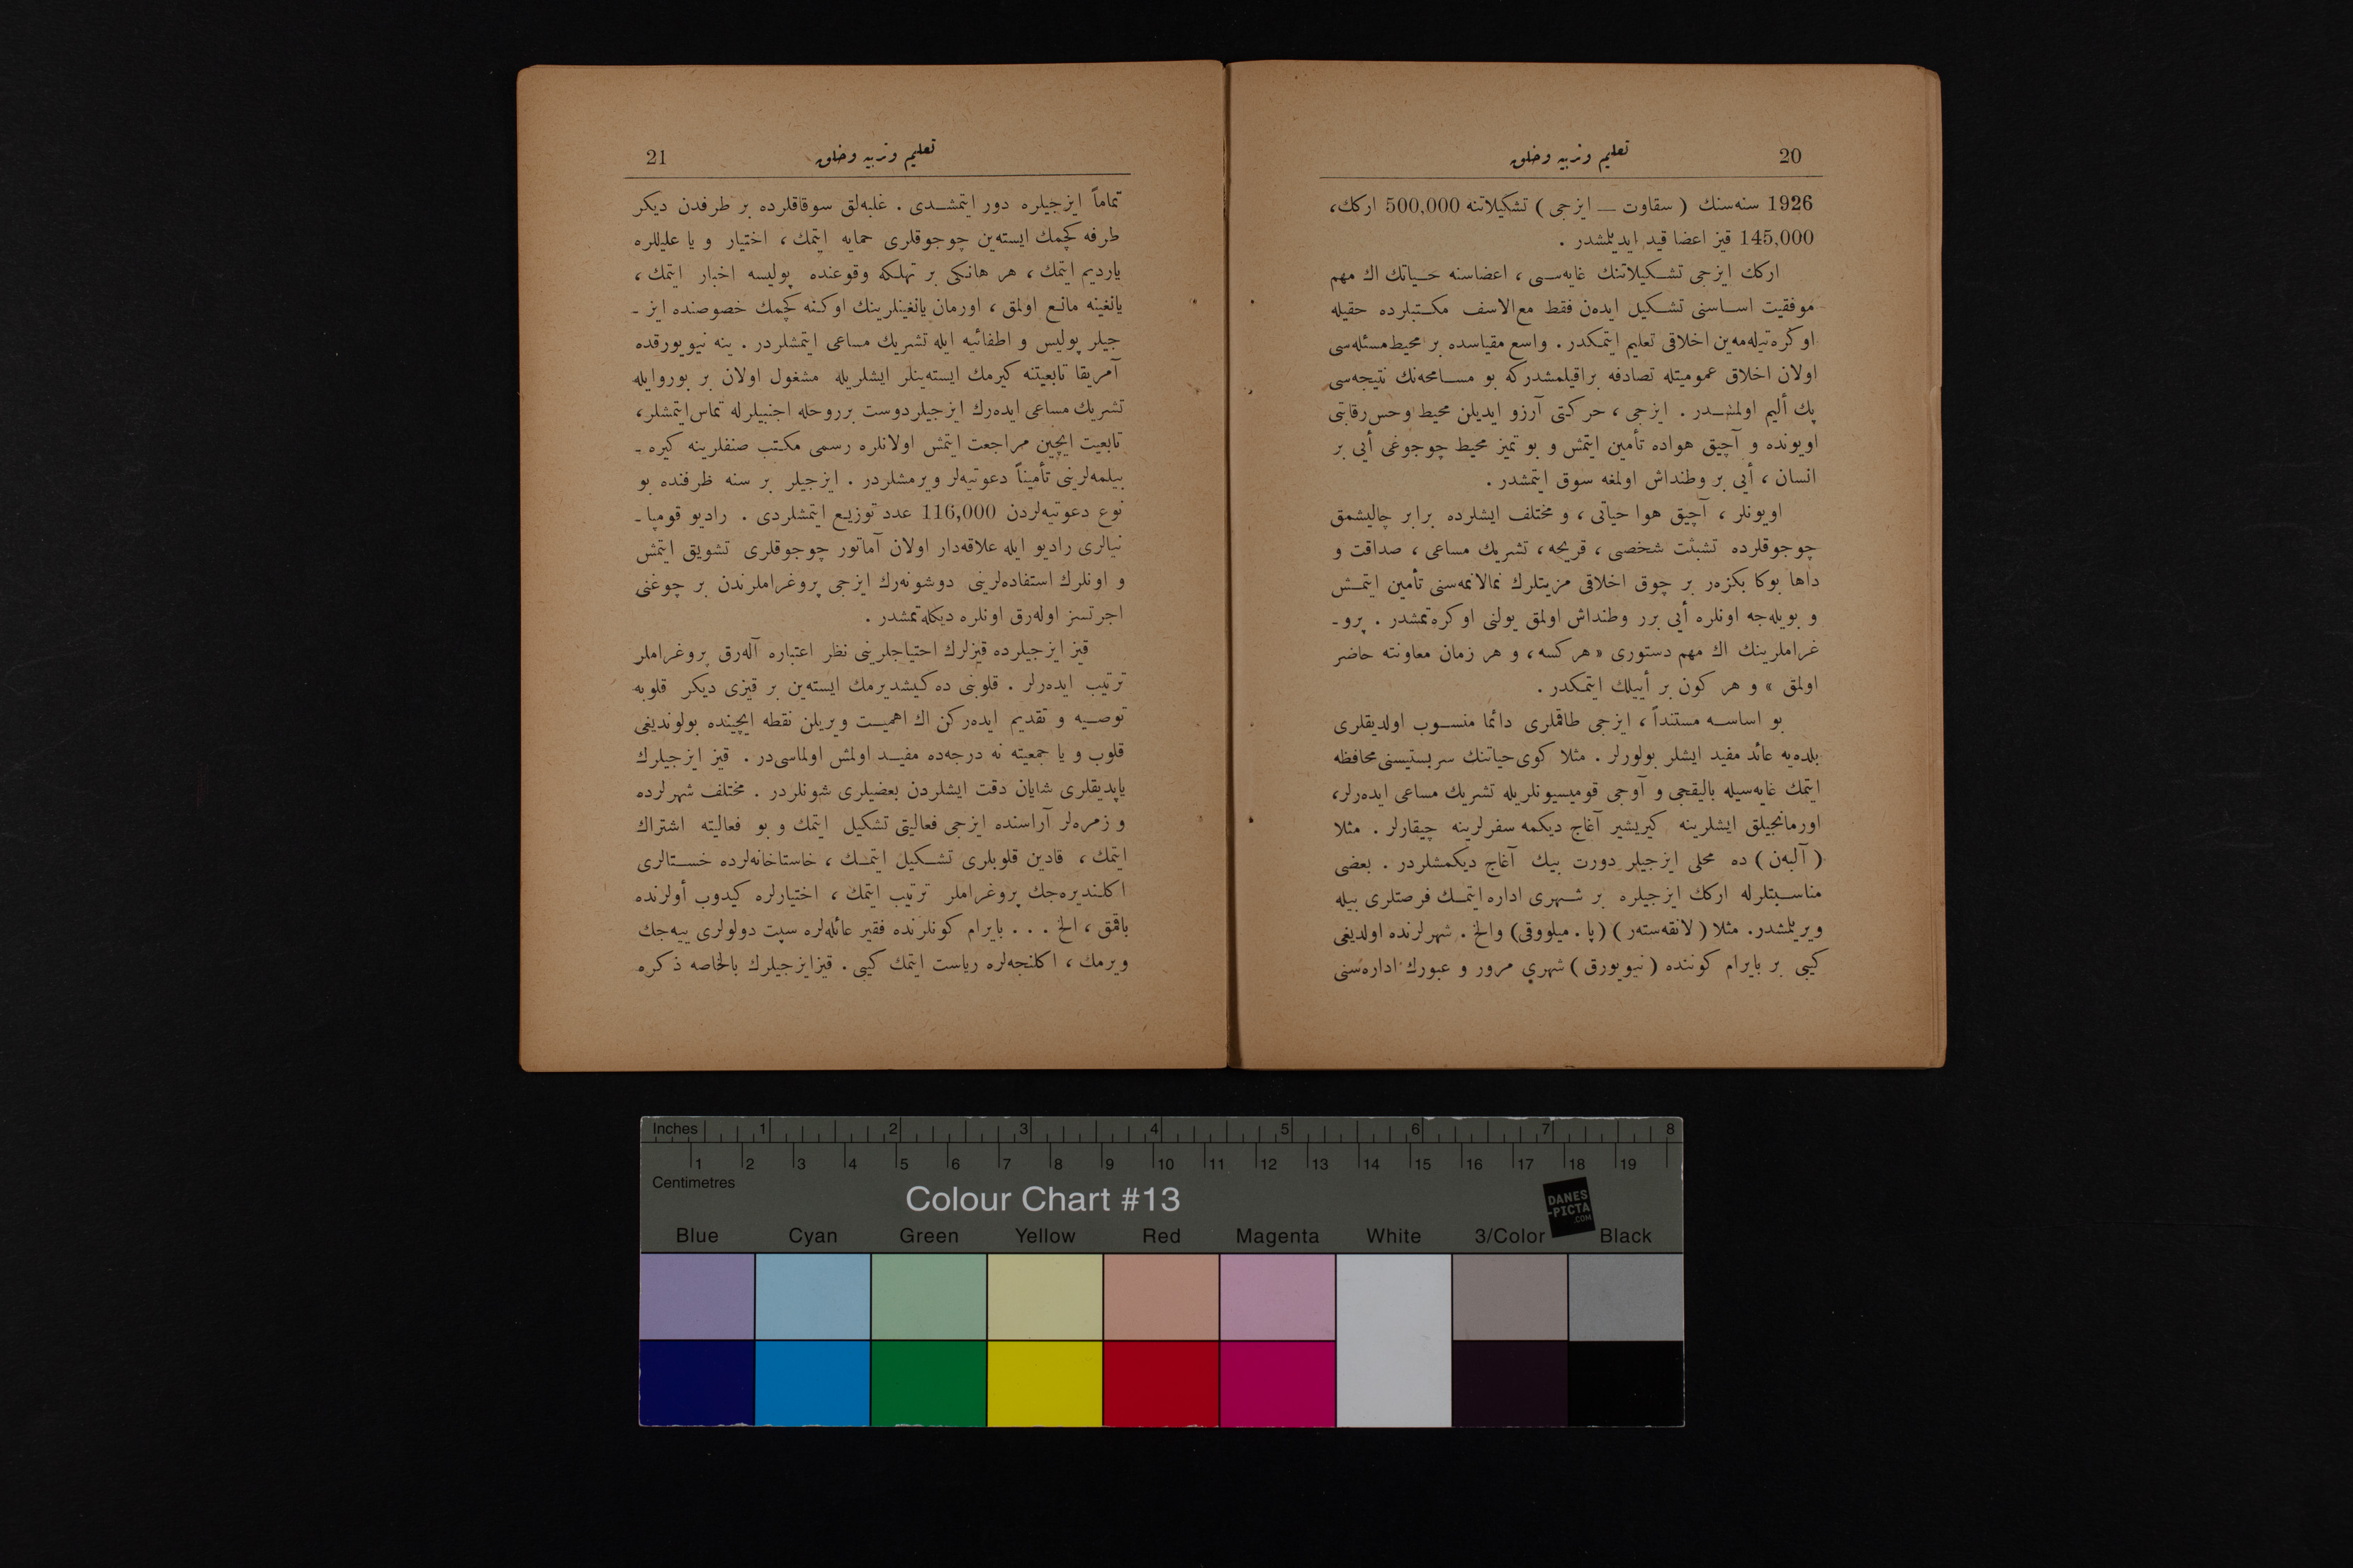 20
تعليم وتربيه وخلق
1926 سنه‌سنك ( سقاوت — ايزجى ) تشكيلاتنه 500,000 اركك،
145,000 قيز اعضا قيد ايديلمشدر .
اركك ايزجى تشكيلاتنك غايه‌سى ، اعضاسنه حياتك اك مهم
موفقيت اساسنى تشكيل ايده‌ن فقط مع‌الاسف مكتبلرده حقيله
اوكره‌تيله‌مه‌ين اخلاقى تعليم ايتمكدر . واسع مقياسده بر محيط مسئله‌سى
اولان اخلاق عموميتله تصادفه براقيلمشدركه بو مسامحه‌نك نتيجه‌سى
پك أليم اولمشدر . ايزجى ، حركتى آرزو ايديلن محيط وحس رقابتى
اويونده و آچيق هواده تأمين ايتمش و بو تميز محيط چوجوغى أيى بر
انسان ، أيى بر وطنداش اولمغه سوق ايتمشدر .
اويونلر ، آچيق هوا حياتى ، و مختلف ايشلرده برابر چاليشمق
چوجوقلرده تشبث شخصى ، قريحه ، تشريك مساعى ، صداقت و
داها بوكا بكزه‌ر بر چوق اخلاقى مزيتلرك نمالانمه‌سنى تأمين ايتمش
و بويله‌جه اونلره أيى برر وطنداش اولمق يولنى اوكره‌تمشدر . پرو-
غراملرينك اك مهم دستورى « هر كسه ، و هر زمان معاونته حاضر
اولمق » و هر كون بر أييلك ايتمكدر .
بو اساسه مستنداً ، ايزجى طاقملرى دائما منسوب اولديقلرى
بلده‌يه عائد مفيد ايشلر بولورلر . مثلا كوى حياتنك سربستيسنى محافظه
ايتمك غايه‌سيله باليقجى و آوجى قوميسيونلريله تشريك مساعى ايده‌رلر،
اورمانجيلق ايشلرينه كيريشير آغاج ديكمه سفرلرينه چيقارلر . مثلا
( آلبه‌ن ) ده محلى ايزجيلر دورت بيك آغاج ديكمشلردر . بعضى
مناسبتلرله اركك ايزجيلره بر شهرى اداره ايتمك فرصتلرى بيله
ويريلمشدر. مثلا ( لانقه‌ستر ) (پا . ميلووقى) والخ . شهرلرنده اولديغى
كيبى بر بايرام كوننده ( نيويورق ) شهرى مرور و عبورك اداره‌سنى
21
تعليم وتربيه وخلق
تماماً ايزجيلره دور ايتمشدى . غلبه‌لق سوقاقلرده بر طرفدن ديكر
طرفه كچمك ايسته‌ين چوجوقلرى حمايه ايتمك ، اختيار و يا عليللره
يارديم ايتمك ، هر هانكى بر تهلكه وقوعنده پوليسه اخبار ايتمك ،
يانغينه مانع اولمق ، اورمان يانغينلرينك اوكنه كچمك خصوصنده ايز-
جيلر پوليس و اطفائيه ايله تشريك مساعى ايتمشلردر . ينه نيويورقده
آمريقا تابعيتنه كيرمك ايسته‌ينلر ايشلريله مشغول اولان بر بوروايله
تشريك مساعى ايده‌رك ايزجيلر دوست برروحله اجنبيلرله تماس ايتمشلر،
تابعيت ايچين مراجعت ايتمش اولانلره رسمى مكتب صنفلرينه كيره-
بيلمه‌لرينى تأميناً دعوتيه‌لر ويرمشلردر . ايزجيلر بر سنه ظرفنده بو
نوع دعوتيه‌لردن 116,000 عدد توزيع ايتمشلردى . راديو قومپا-
نيالرى راديو ايله علاقه‌دار اولان آماتور چوجوقلرى تشويق ايتمش
و اونلرك استفاده‌لرينى دوشونه‌رك ايزجى پروغراملرندن بر چوغنى
اجرتسز اوله‌رق اونلره ديكله‌تمشدر .
قيز ايزجيلرده قيزلرك احتياجلرينى نظر اعتباره آله‌رق پروغراملر
ترتيب ايده‌رلر . قلوبنى ده‌كيشديرمك ايسته‌ين بر قيزى ديكر قلوبه
توصيه و تقديم ايده‌ركن اك اهميت ويريلن نقطه ايچينده بولونديغى
قلوب و يا جمعيته نه درجه‌ده مفيد اولمش اولماسى‌در . قيز ايزجيلرك
ياپديقلرى شايان دقت ايشلردن بعضيلرى شونلردر . مختلف شهرلرده
و زمره‌لر آراسنده ايزجى فعاليتى تشكيل ايتمك و بو فعاليته اشتراك
ايتمك ، قادين قلوبلرى تشكيل ايتمك ، خاستاخانه‌لرده خستالرى
اكلنديره‌جك پروغراملر ترتيب ايتمك ، اختيارلره كيدوب أولرنده
باقمق ، الخ . . . بايرام كونلرنده فقير عائله‌لره سپت دولولرى ييه‌جك
ويرمك ، اكلنجه‌لره رياست ايتمك كيبى . قيزايزجيلرك بالخاصه ذكره
Inches 1 2 3 4 5 6 7 8
1 2 3 4 5 6 7 8 9 10 11 12 13 14 15 16 17 18 19
Centimetres
Colour Chart #13
DANES
-PICTA
.COM
Blue Cyan Green Yellow Red Magenta White 3/Color Black